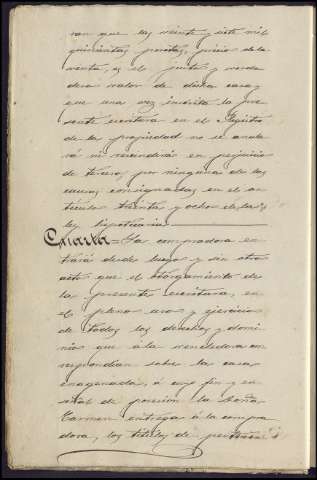 ran que las veinte y siete mil
quinientas pesetas, precio de la
venta, es el justo y verda
dero valor de dicha casa y
que una vez inscrita la pre
sente escritura en el Registro
de la propiedad no se anula
rá ni rescindirá en perjuicio
de tercero, por ninguna de las
causas consignadas en el ar
tículo treinta y ocho de la
ley hipotecaria.
Cuarta = La compradora en
trará desde luego y sin otro
acto que el otorgamiento de
la presente escritura, en
el pleno uso y ejercicio
de todos los derechos y domi
nio que á la vendedora cor
respondian sobre la casa
enagenada, á cuyo fin y en
señal de posesion la Doña
Carmen entrega á la compra
dora, los títulos de